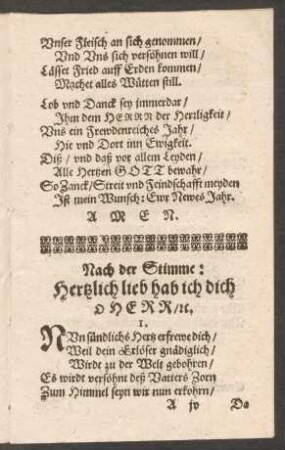 Vnser Fleisch an sich genommen/
Vnd Vns sich versöhnen will/
Lässet Fried auff Erden kommen/
Machet alles Wütten still.
Lob vnd Danck sey immerdar/
Ihm dem HERRN der Herrligkeit/
Vns ein Frewdenreiches Jahr/
Hie vnd Dort inn Ewigkeit.
Diß/ vnd daß vor allem Leyden/
Alle Hertzen GOTT bewahr/
So Zanck/Streit vnd Feindschafft meyden
Ist mein Wunsch: Ewr Newes Jahr.
A M E N.
Nach der Stimme:
Hertzlich lieb hab ich dich
O HERR/ꝛc.
1.
NVn sündlichs Hertz erfrewe dich/
Weil dein Erlöser gnädiglich/
Wirdt zu der Welt gebohren/
Es wirdt versöhnt deß Vatters Zorn
Zum Himmel seyn wir nun erkohrn/
A jv Da